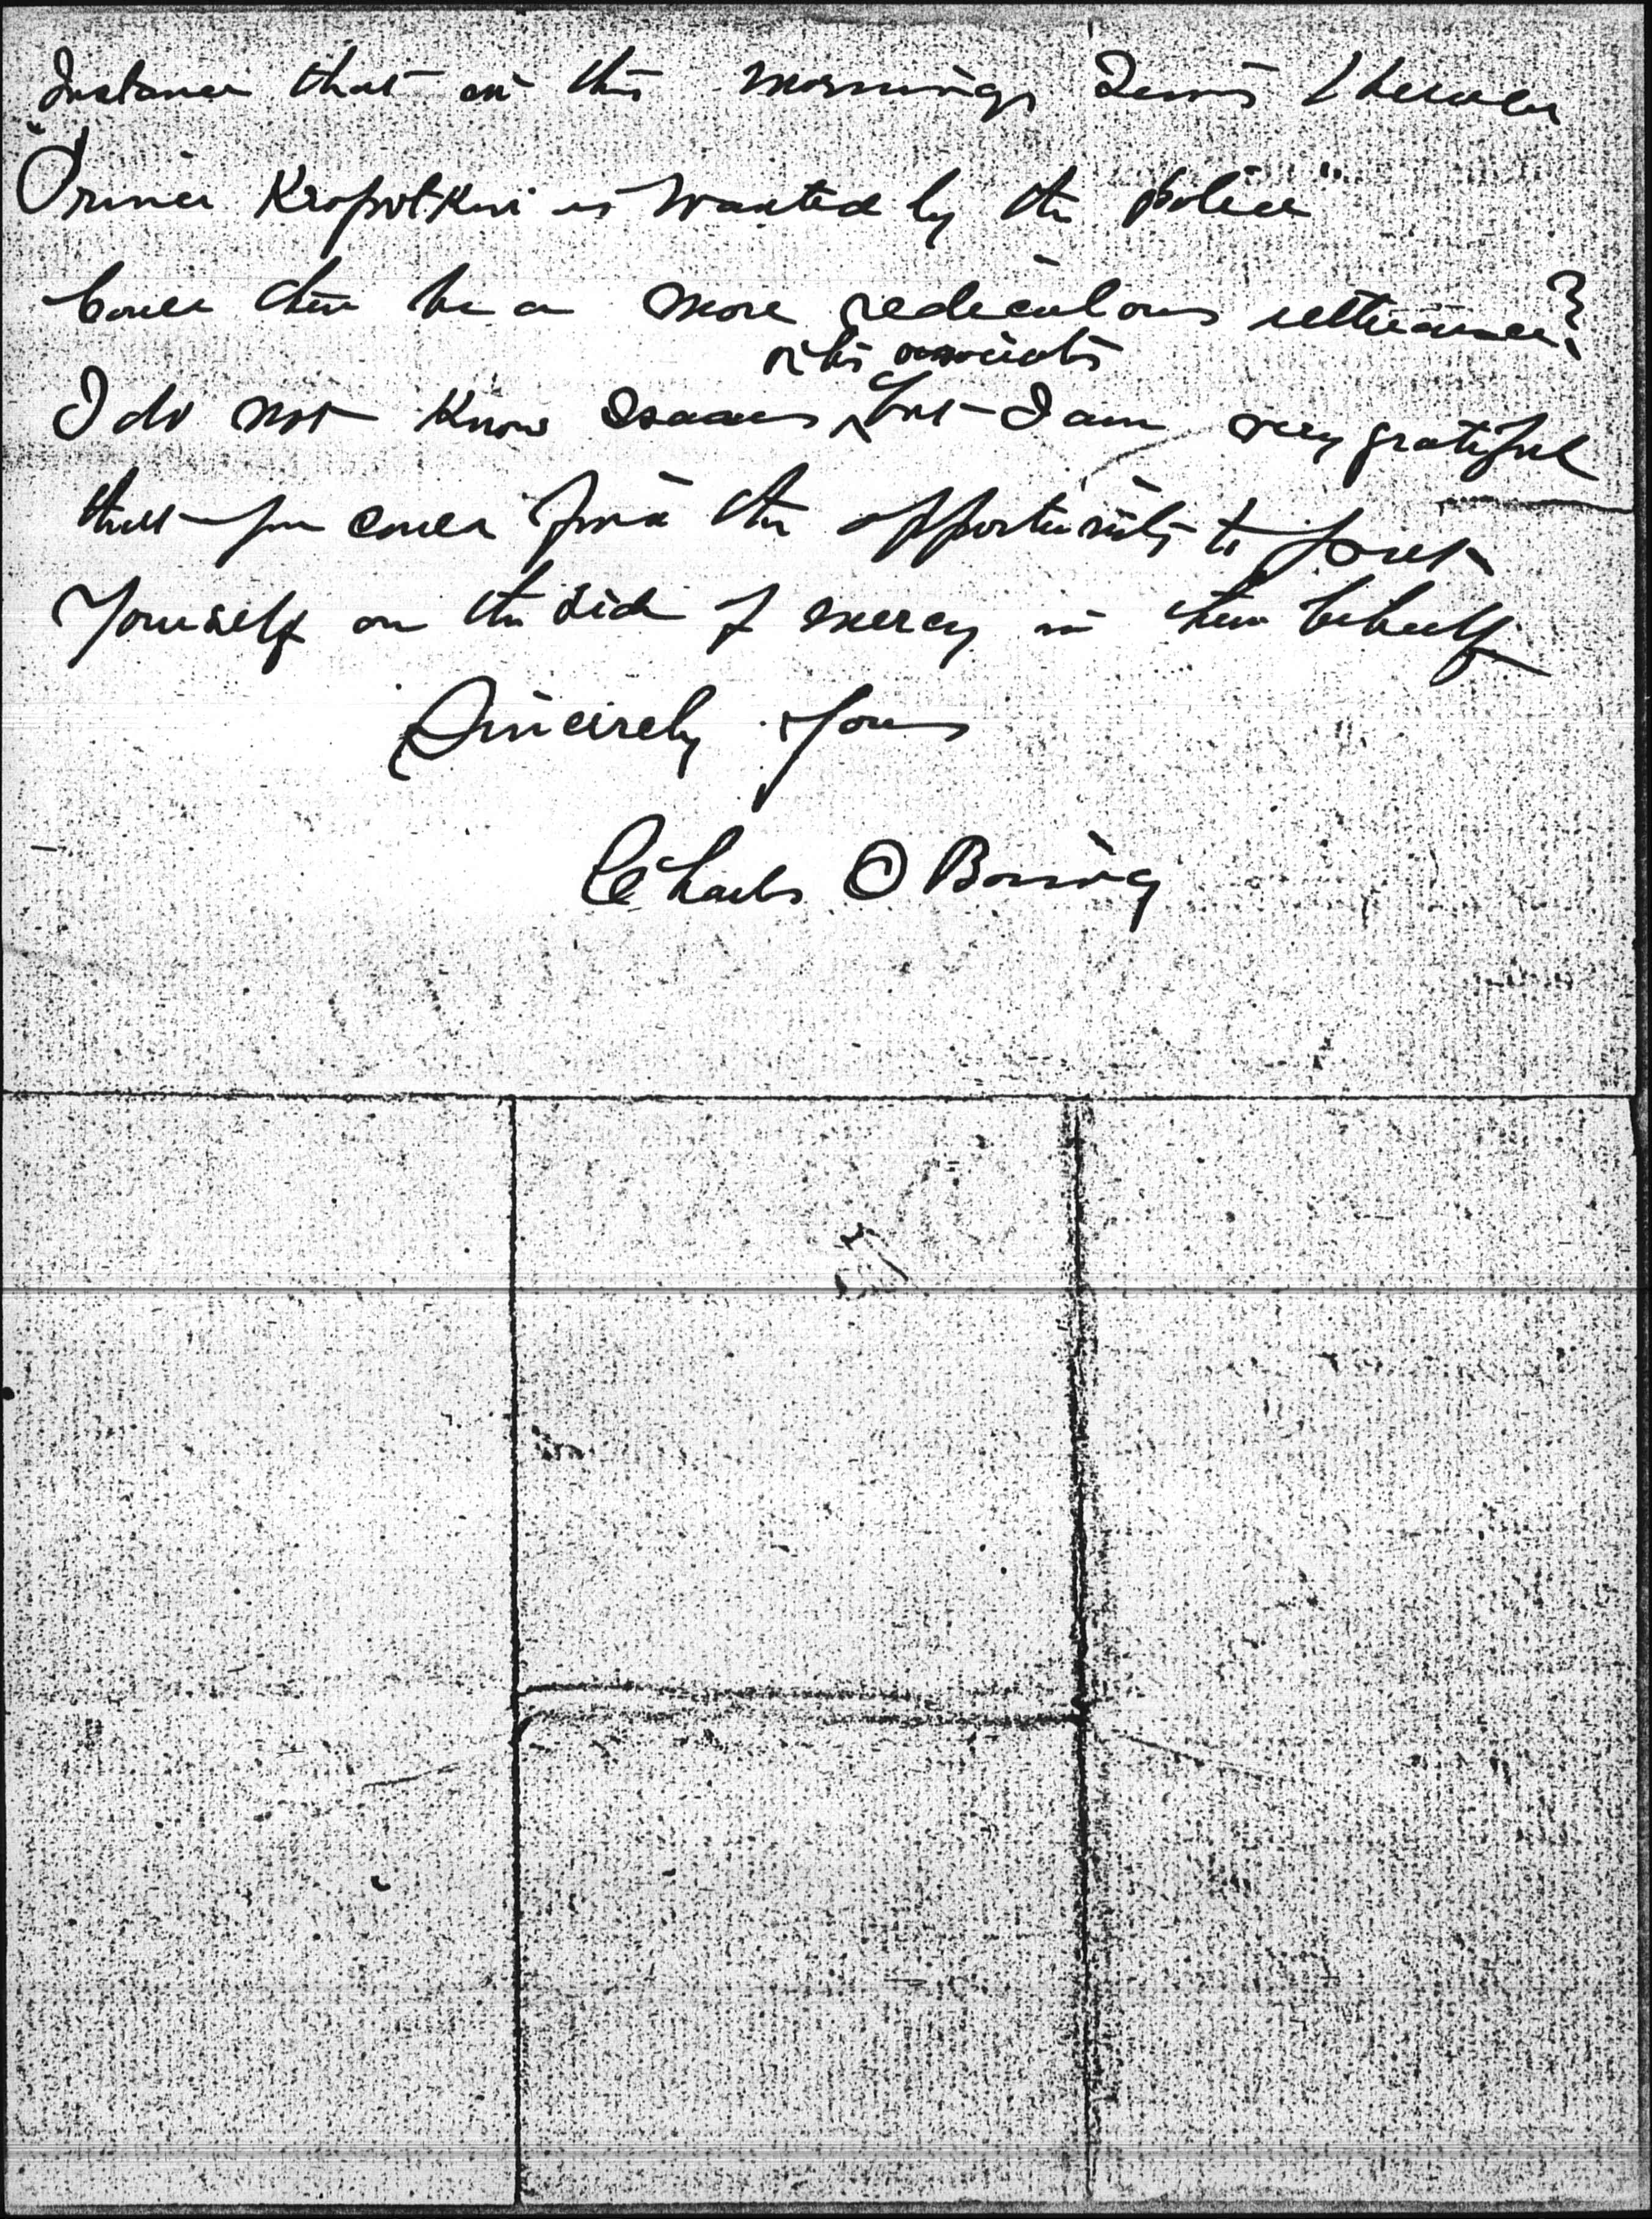 Instance that in this mornings Times Herald
"Prince Kropotkin is wanted by the police"
Could there be a more rediculous utterance?
or his associates
I do not know Isaacs ^ but I am very grateful
that you could find the opportunity to put
Yourself on the side of mercy in their behalf
Sincerely Yours
Charles O Boring